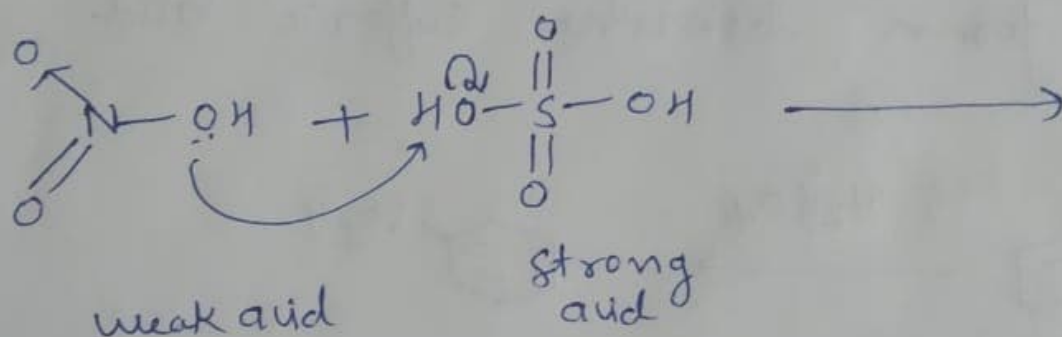 O O
N — ÖH + HO — S — OH →
O O
weak acid strong acid